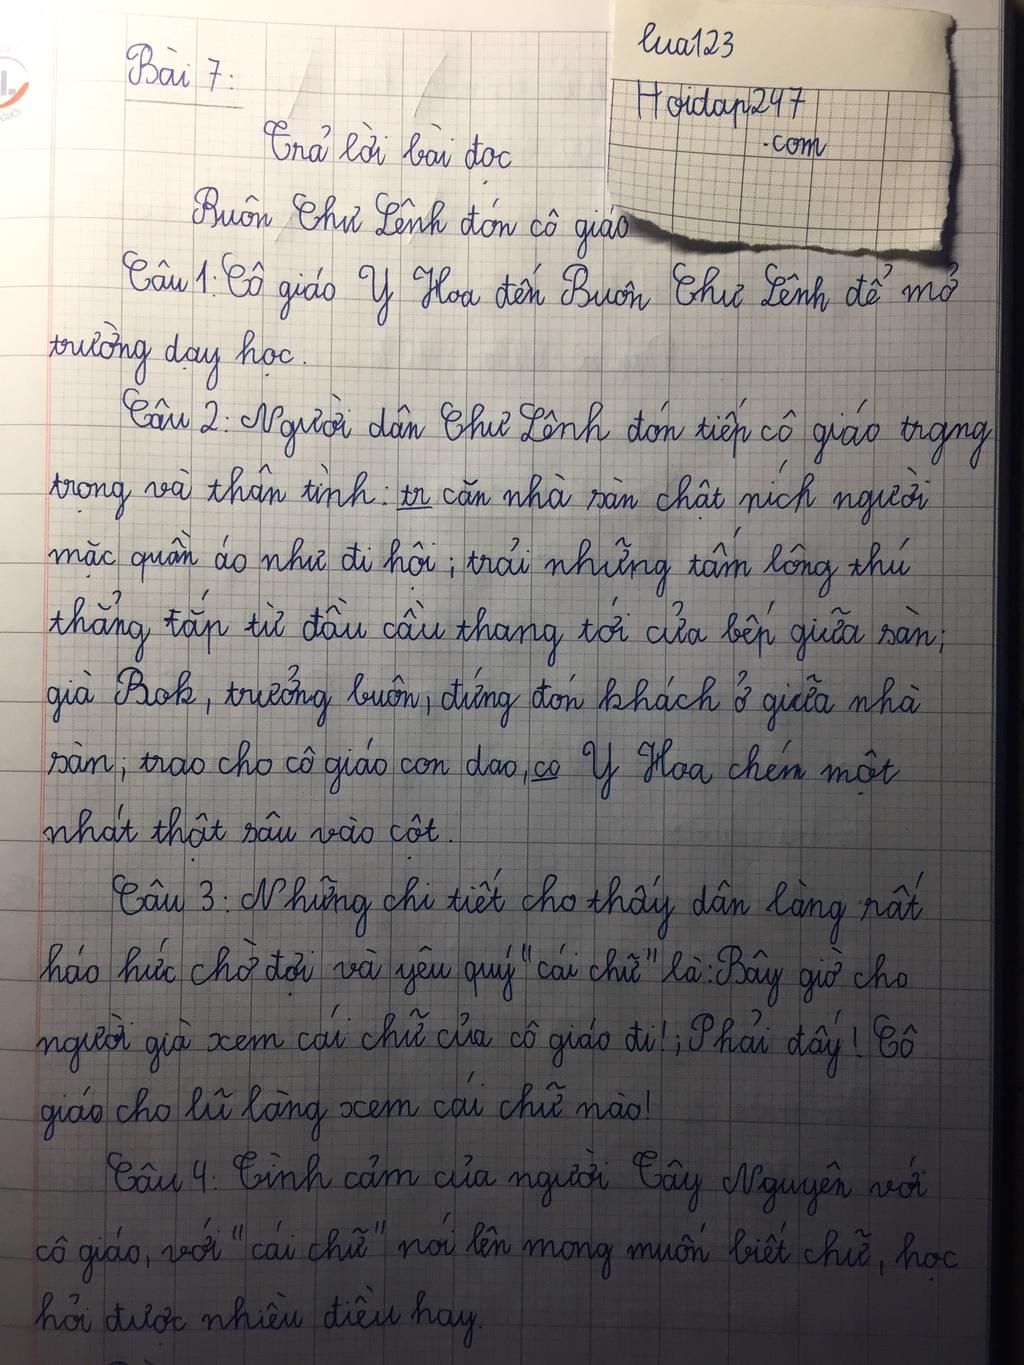 lua123
Hoidap247
.com
Bài 7:
Trả lời bài đọc
Buôn Chư Lênh đón cô giáo
Câu 1: Cô giáo Y Hoa đến Buôn Chư Lênh để mở
trường dạy học.
Câu 2: Người dân Chư Lênh đón tiếp cô giáo trang
trọng và thân tình: tr căn nhà sàn chật ních người
mặc quần áo như đi hội; trải những tấm lông thú
thẳng tắp từ đầu cầu thang tới cửa bếp giữa sàn;
già Rok, trưởng buôn, đứng đón khách ở giữa nhà
sàn; trao cho cô giáo con dao, co Y Hoa chém một
nhát thật sâu vào cột.
Câu 3: Những chi tiết cho thấy dân làng rất
háo hức chờ đợi và yêu quý "cái chữ" là: Bây giờ cho
người già xem cái chữ của cô giáo đi!; Phải đấy! Cô
giáo cho lũ làng xem cái chữ nào!
Câu 4: Tình cảm của người Tây Nguyên với
cô giáo, với "cái chữ" nói lên mong muốn biết chữ, học
hỏi được nhiều điều hay.